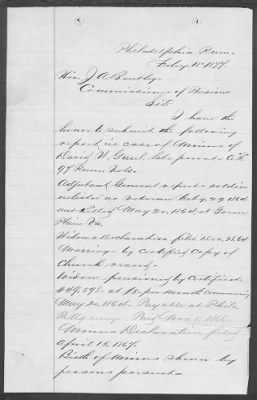 Philadelphia Penn
Feby 1st 1877.
Hon. J. A. Bentley
Commissioner of Pensions
Sir
I have the
honor to submit the following
report in case of Minors of
David H. late private Co K
99 Penn Vols.
Adjutant General reports soldier
enlisted as veteran Feby 29 1864
and Killed May 20, 1864 at
Va.
Widow's Declaration filed
Marriage by Certified Copy of
Church record.
Widow pensioned by Certificate
# 49,298 at $8 per month Commencing
May 20, 1864. Payable at Phila
Agency.
Minors Declaration filed
April 13, 1867.
Birth of Minors shown by
persons present